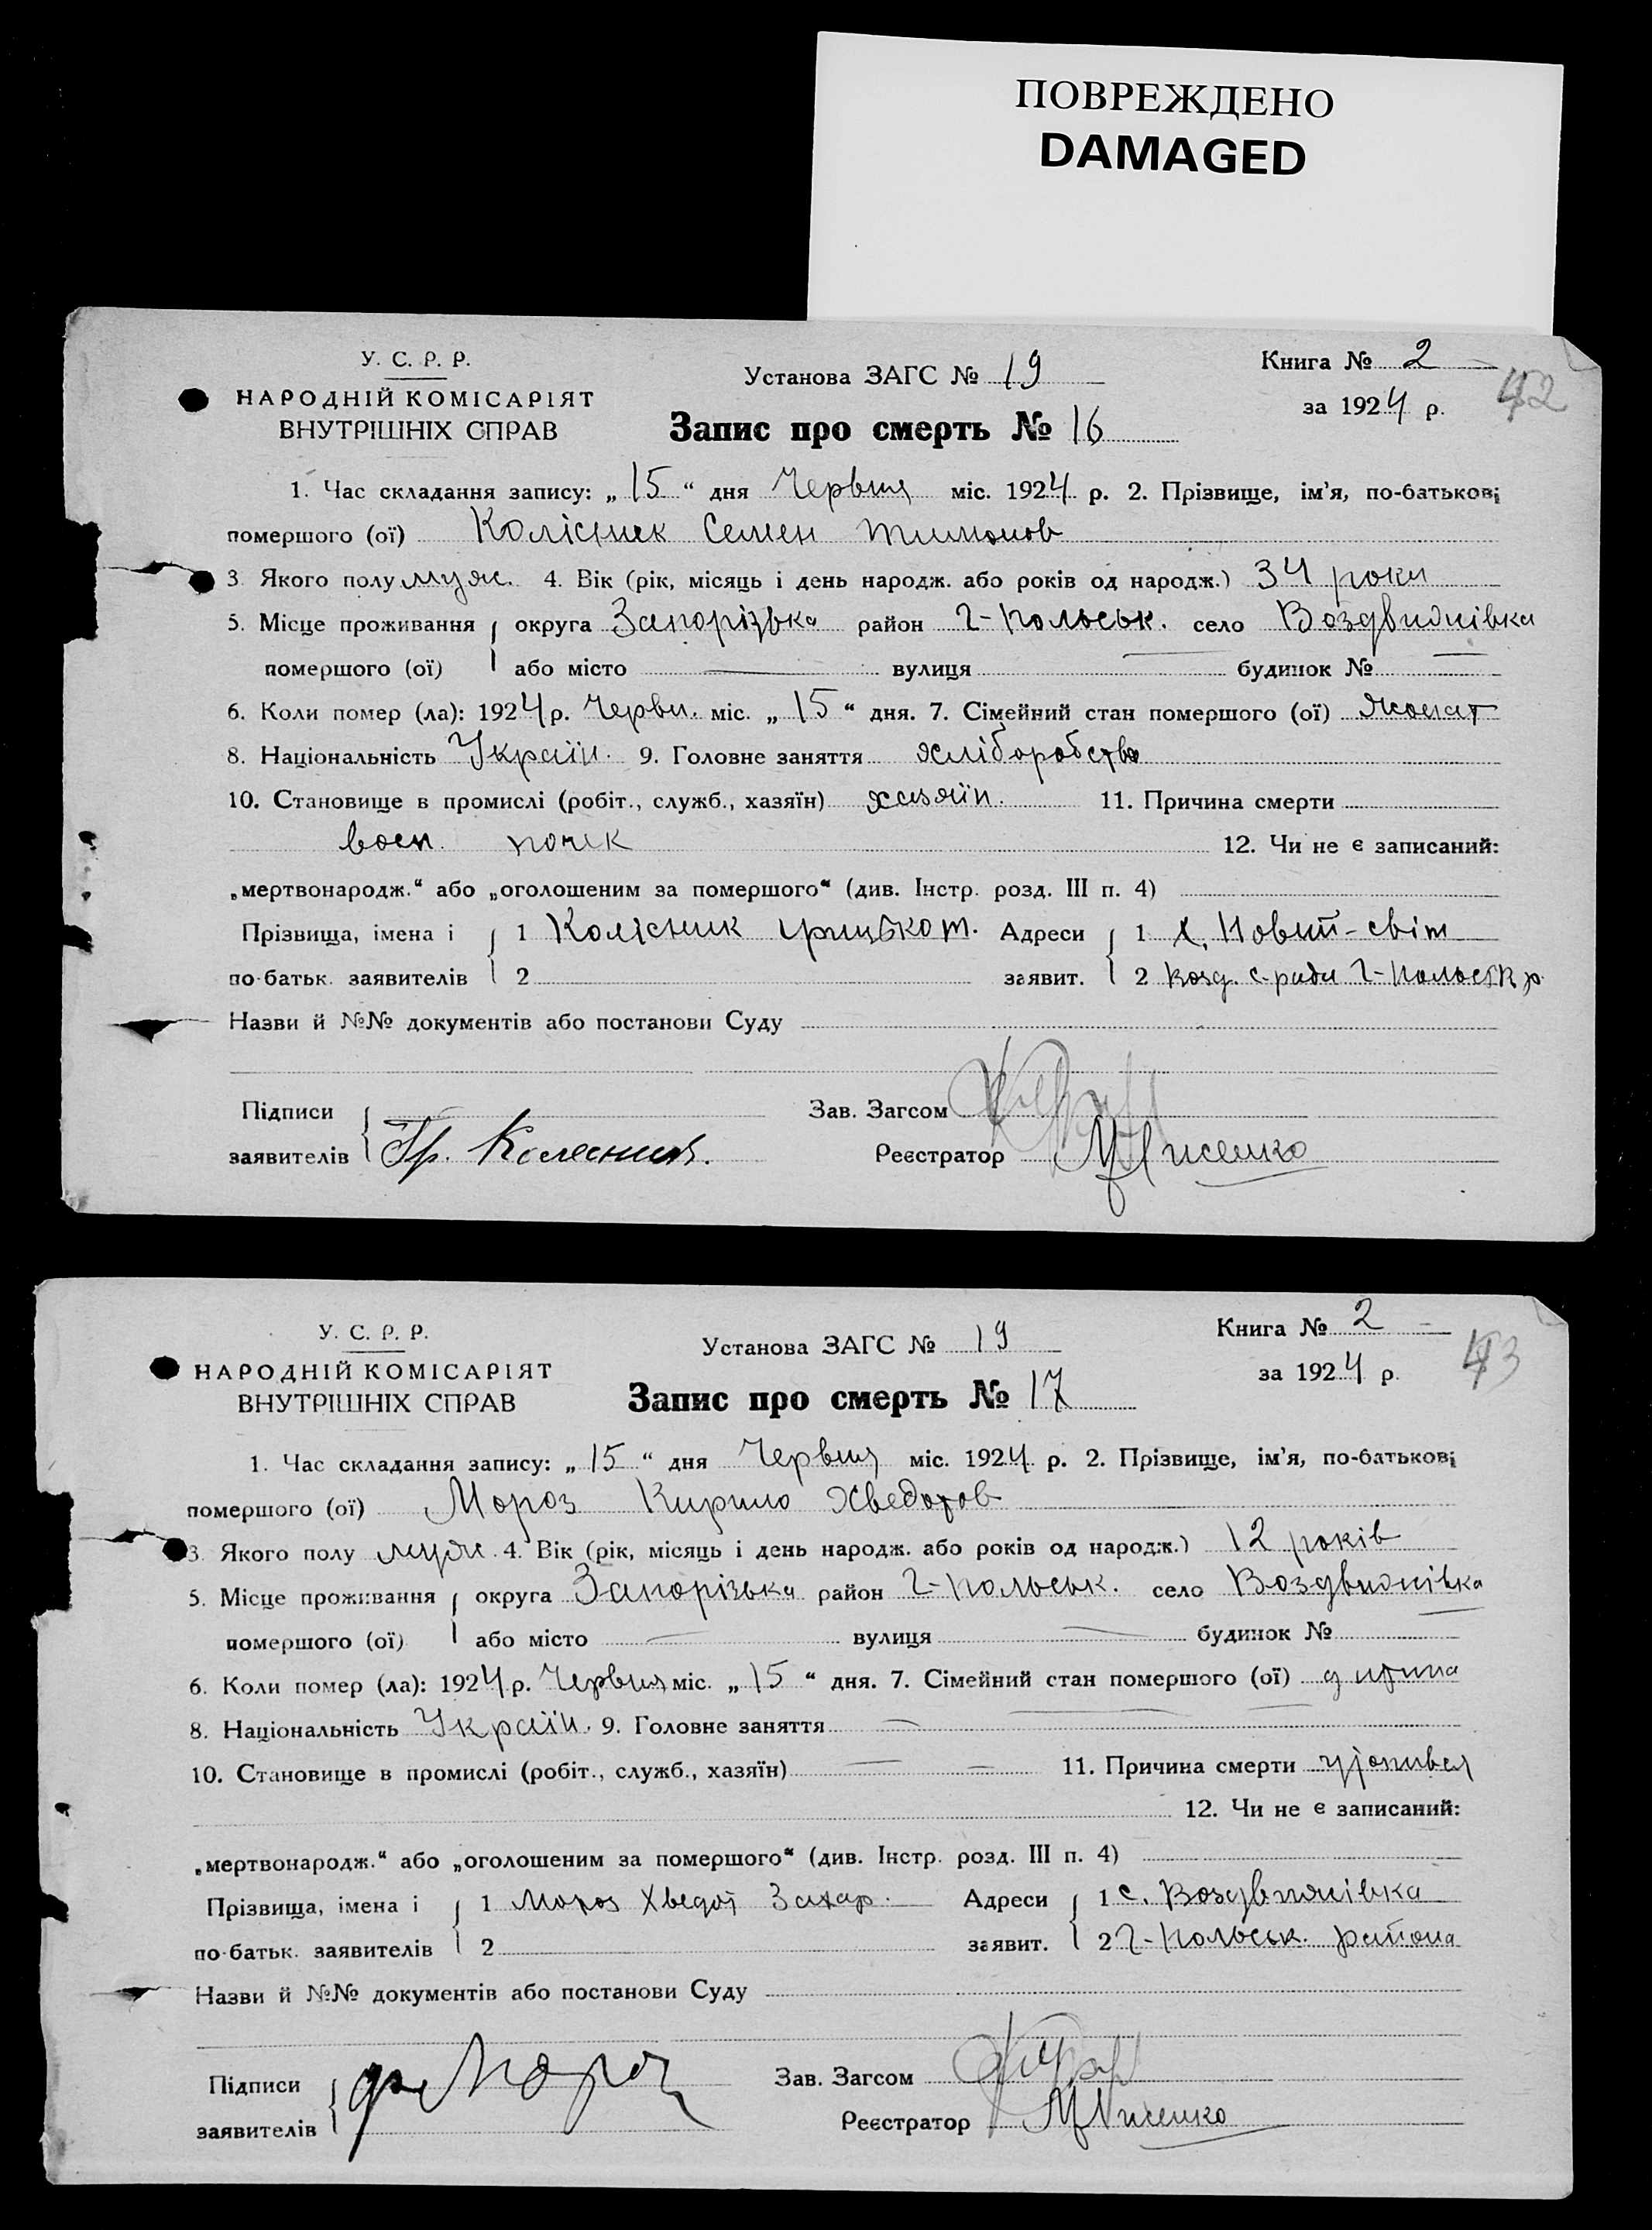 ПОВРЕЖДЕНО
DAMAGED
У. С. Р. Р.
НАРОДНІЙ КОМІСАРІЯТ
ВНУТРІШНІХ СПРАВ
Установа ЗАГС № 19
Запис про смерть № 16
Книга № 2
за 1924 р.
42
1. Час складання запису: „15“ дня Червня міс. 1924 р. 2. Прізвище, ім'я, по-батькові
померлого (ої) Колісник Семен Тимонов
3 Якого полу муж. 4. Вік (рік, місяць і день народж. або років од народж.) 34 роки
5. Місце проживання округа Запорізька район Г-Польськ. село Воздвижнівка
померлого (ої) або місто — вулиця — будинок № —
6. Коли помер (ла): 1924 р. Червн. міс. „15“ дня. 7. Сімейний стан померлого (ої) жонат
8. Національність Україн. 9. Головне заняття хліборобство
10. Становище в промислі (робіт., служб., хазяїн) хазяїн. 11. Причина смерти
восп. почек 12. Чи не є записаний:
„мертвонародж.“ або „оголошеним за померлого“ (див. Інстр. розд. III п. 4)
Прізвища, імена і 1 Колісник Грицько т. Адреси 1 х. Новий-світ
по-батьк. заявителів 2 заявит. 2 Возд. с-ради Г-Польськ р.
Назви й №№ документів або постанови Суду
Підписи Зав. Загсом
заявителів Гр. Колесник. Реєстратор Лисенко
У. С. Р. Р.
НАРОДНІЙ КОМІСАРІЯТ
ВНУТРІШНІХ СПРАВ
Установа ЗАГС № 19
Запис про смерть № 17
Книга № 2 —
за 1924 р.
43
1. Час складання запису: „15“ дня Червня міс. 1924 р. 2. Прізвище, ім'я, по-батькові
померлого (ої) Мороз Кирило Хведотов
3. Якого полу муж. 4. Вік (рік, місяць і день народж. або років од народж.) 12 років
5. Місце проживання округа Запорізька район Г-Польськ. село Воздвижнівка
померлого (ої) або місто — вулиця — будинок № —
6. Коли помер (ла): 1924 р. Червня міс. „15“ дня. 7. Сімейний стан померлого (ої) дитина
8. Національність Україн. 9. Головне заняття —
10. Становище в промислі (робіт., служб., хазяїн) — — 11. Причина смерти утопився
12. Чи не є записаний:
„мертвонародж.“ або „оголошеним за померлого“ (див. Інстр. розд. III п. 4)
Прізвища, імена і 1 Мороз Хведот Захар. Адреси 1 с. Воздвижнівка
по-батьк. заявителів 2 заявит. 2 Г-Польськ. района
Назви й №№ документів або постанови Суду
Підписи Зав. Загсом
заявителів Мороз Реєстратор Лисенко